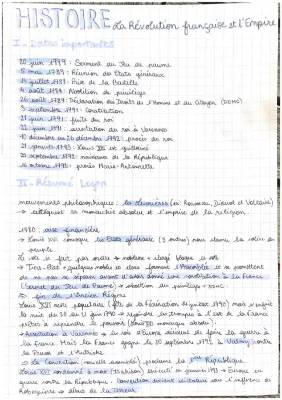 HISTOIRE La Révolution française et l'Empire
I - Dates importantes
20 juin 1789 : Serment du Jeu de paume
5 mai 1789 : Réunion des Etats généraux
14 juillet 1789 : Prise de la Bastille
4 août 1789 : Abolition de privilège
26 août 1789 : Déclaration des Droits de l'Homme et du Citoyen (DDHC)
3 septembre 1791 : Constitution
21 juin 1791 : fuite du roi
22 juin 1791 : arrestation du roi à Varennes
10 décembre au 26 décembre 1792 : procès du roi
21 janvier 1793 : Louis XVI est guillotiné
22 septembre 1792 : naissance de la République
16 octobre 1793 : procès Marie-Antoinette
II - Résumé Leçon
mouvement philosophique : les Lumières (ex: Rousseau, Diderot et Voltaire)
→ critiquent la monarchie absolue et l'emprise de la religion
crise financière
→ Louis XVI convoque les Etats généraux (3 ordres) pour
peuple
Le vote se fait par ordre → noblesse + clergé
→ Tiers-Etat + quelques nobles forment l'Assemblée et se promettent
de ne pas se séparer avant d'avoir donné une constitution à la France
(serment du Jeu de Paume) → abolition des privilèges + DDHC
fin de l'Ancien Régime
Louis XVI reste populaire (fête de la Fédération 14 juillet 1790) mais
la nuit du 20 au 21 juin → à l'est de la France
prêtes à reprendre le pouvoir (Louis XVI monarque absolu)
→ Arrestation à Varennes
la France. Mais la France gagne le 20 septembre 1792, à Valmy contre
la Prusse et l'Autriche
→ La Convention (nouvelle assemblée) proclame la 1ère République
Louis XVI condamné à mort janvier 1793 → Europe en
guerre contre la République. Convention sous l'influence de
Robespierre → début de la Terreur